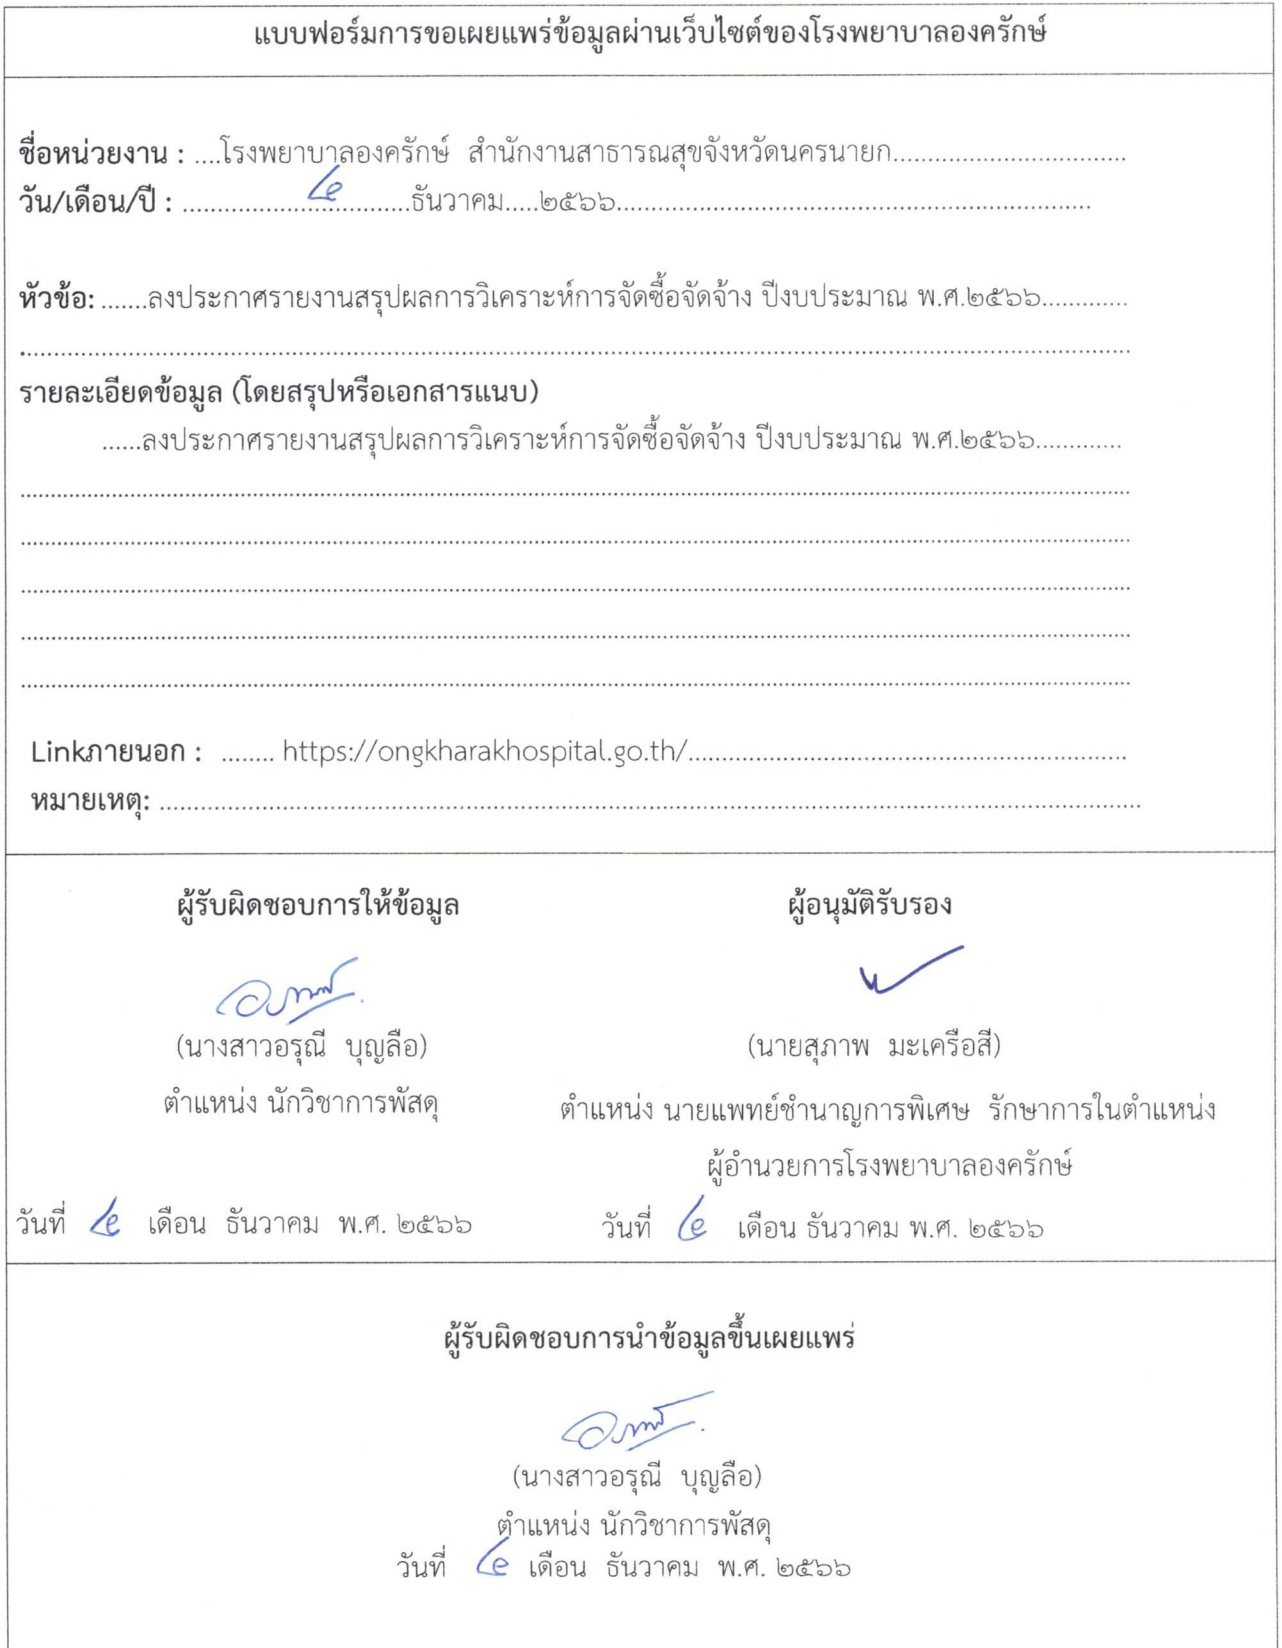 แบบฟอร์มการขอเผยแพร่ข้อมูลผ่านเว็บไซต์ของโรงพยาบาลองครักษ์
ชื่อหน่วยงาน : ....โรงพยาบาลองครักษ์ สำนักงานสาธารณสุขจังหวัดนครนายก................................
วัน/เดือน/ปี : ................................ธันวาคม.....๒๕๖๖.................................................................
หัวข้อ: .......ลงประกาศรายงานสรุปผลการวิเคราะห์การจัดซื้อจัดจ้าง ปีงบประมาณ พ.ศ.๒๕๖๖.............
รายละเอียดข้อมูล (โดยสรุปหรือเอกสารแนบ)
......ลงประกาศรายงานสรุปผลการวิเคราะห์การจัดซื้อจัดจ้าง ปีงบประมาณ พ.ศ.๒๕๖๖.............
Linkภายนอก : ........ https://ongkharakhospital.go.th/.............................................................
หมายเหตุ: ........................................................................................................
ผู้รับผิดชอบการให้ข้อมูล
(นางสาวอรุณี บุญลือ)
ตำแหน่ง นักวิชาการพัสดุ
วันที่ เดือน ธันวาคม พ.ศ. ๒๕๖๖
ผู้อนุมัติรับรอง
(นายสุภาพ มะเครือสี)
ตำแหน่ง นายแพทย์ชำนาญการพิเศษ รักษาการในตำแหน่ง
ผู้อำนวยการโรงพยาบาลองครักษ์
วันที่ เดือน ธันวาคม พ.ศ. ๒๕๖๖
ผู้รับผิดชอบการนำข้อมูลขึ้นเผยแพร่
(นางสาวอรุณี บุญลือ)
ตำแหน่ง นักวิชาการพัสดุ
วันที่ เดือน ธันวาคม พ.ศ. ๒๕๖๖